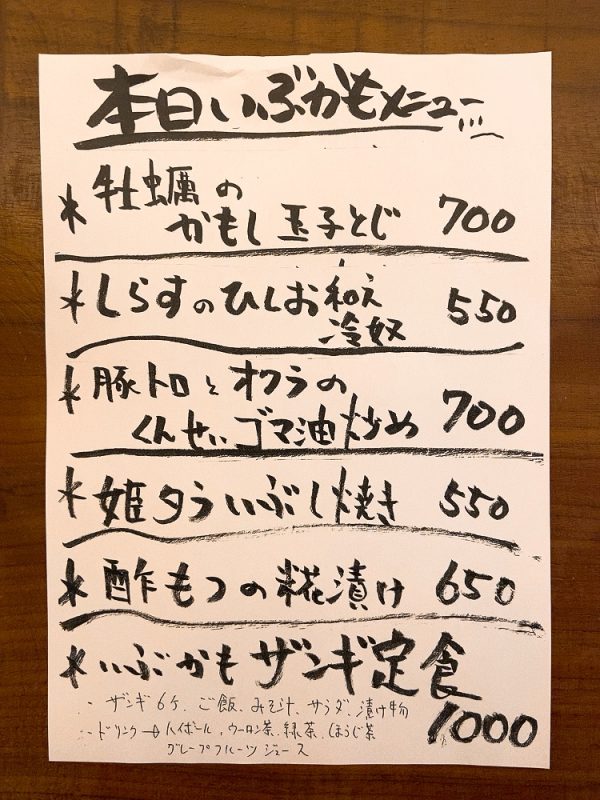 本日いぶかもメニュー
* 牡蠣の
かもし玉子とじ 700
* しらすのひしお和え
冷奴 550
* 豚トロとオクラの
くんせいゴマ油炒め 700
* 姫タラいぶし焼き 550
* 酢もつの糀漬け 650
* いぶかもザンギ定食
・ザンギ6ケ、ご飯、みそ汁、サラダ、漬け物
1000
・ドリンク→ハイボール、ウーロン茶、緑茶、ほうじ茶
グレープフルーツジュース